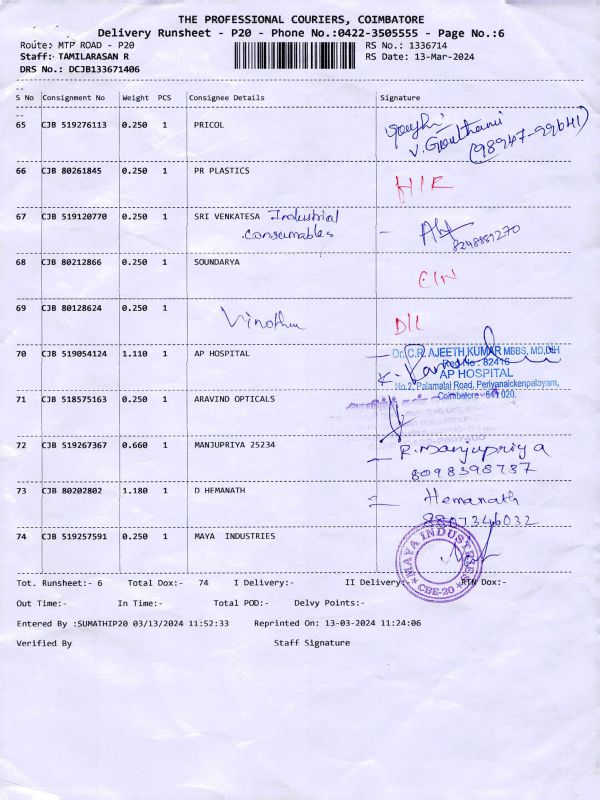 THE PROFESSIONAL COURIERS, COIMBATORE
Delivery Runsheet - P20 - Phone No.:0422-3505555 - Page No.:6
Route: MTP ROAD - P20 RS No.: 1336714
Staff: TAMILARASAN R RS Date: 13-Mar-2024
DRS No.: DCJB133671406
S No Consignment No Weight PCS Consignee Details Signature
65 CJB 519276113 0.250 1 PRICOL
V. Gouthami
(98947-99641)
66 CJB 80261845 0.250 1 PR PLASTICS
67 CJB 519120770 0.250 1 SRI VENKATESA Industrial
consumables
68 CJB 80212866 0.250 1 SOUNDARYA
69 CJB 80128624 0.250 1
D/L
70 CJB 519054124 1.110 1 AP HOSPITAL
Dr. C.R. AJEETH KUMAR MBBS, MD, DIH
Reg No : 82416
AP HOSPITAL
No.2, Palamalai Road, Periyanaickenpalayam,
Coimbatore - 641 020.
71 CJB 518575163 0.250 1 ARAVIND OPTICALS
72 CJB 519267367 0.660 1 MANJUPRIYA 25234 R. Manjupriya
8098398737
73 CJB 80202802 1.180 1 D HEMANATH Hemanath
8807346032
74 CJB 519257591 0.250 1 MAYA INDUSTRIES
MAYA INDUSTRIES
CBE-20
Tot. Runsheet:- 6 Total Dox:- 74 I Delivery:- II Delivery:- RTN Dox:-
Out Time:- In Time:- Total POD:- Delvy Points:-
Entered By :SUMATHIP20 03/13/2024 11:52:33 Reprinted On: 13-03-2024 11:24:06
Verified By Staff Signature